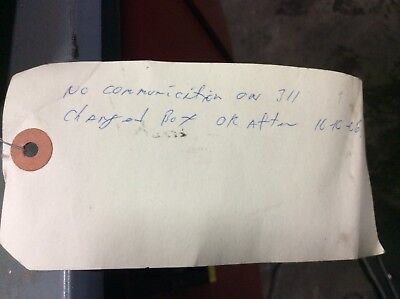 No communication on 311
Changed Box OK After